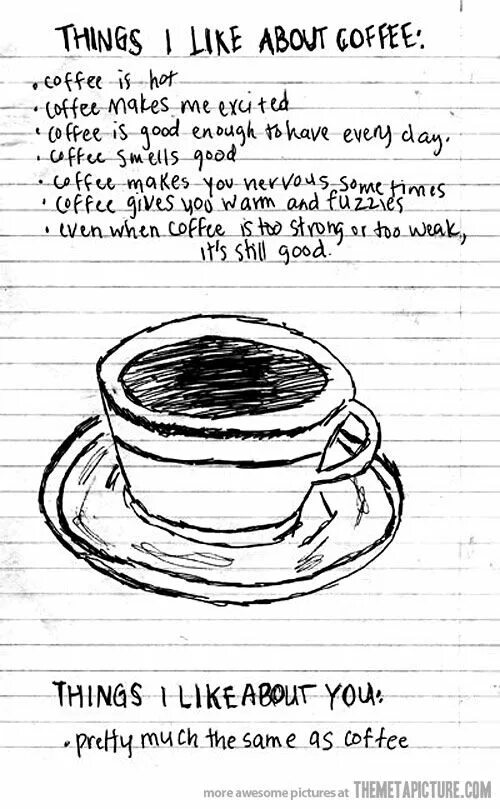 THINGS I LIKE ABOUT COFFEE:
• coffee is hot
• coffee makes me excited
• coffee is good enough to have every day.
• coffee smells good
• coffee makes you nervous sometimes
• coffee gives you warm and fuzzies
• even when coffee is too strong or too weak,
it's still good.
THINGS I LIKE ABOUT YOU:
• pretty much the same as coffee
more awesome pictures at THEMETAPICTURE.COM